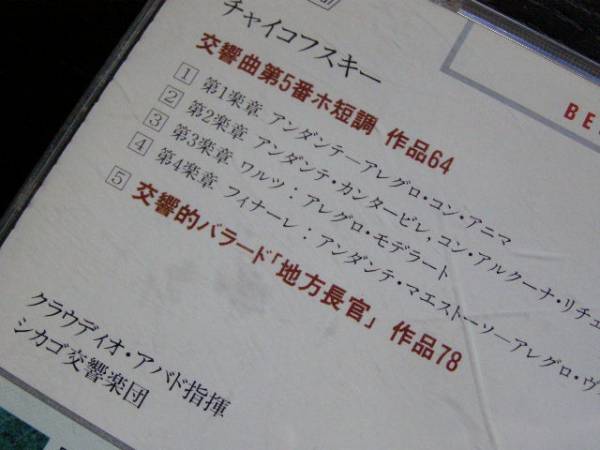 チャイコフスキー
交響曲第5番ホ短調 作品64
1 第1楽章 アンダンテーアレグロ・コン・アニマ
2 第2楽章 アンダンテ・カンタービレ,コン・アルクーナ・リチェ
3 第3楽章 ワルツ:アレグロ・モデラート
4 第4楽章 フィナーレ:アンダンテ・マエストーソーアレグロ・ヴ
5 交響的バラード「地方長官」 作品78
クラウディオ・アバド指揮
シカゴ交響楽団
BE